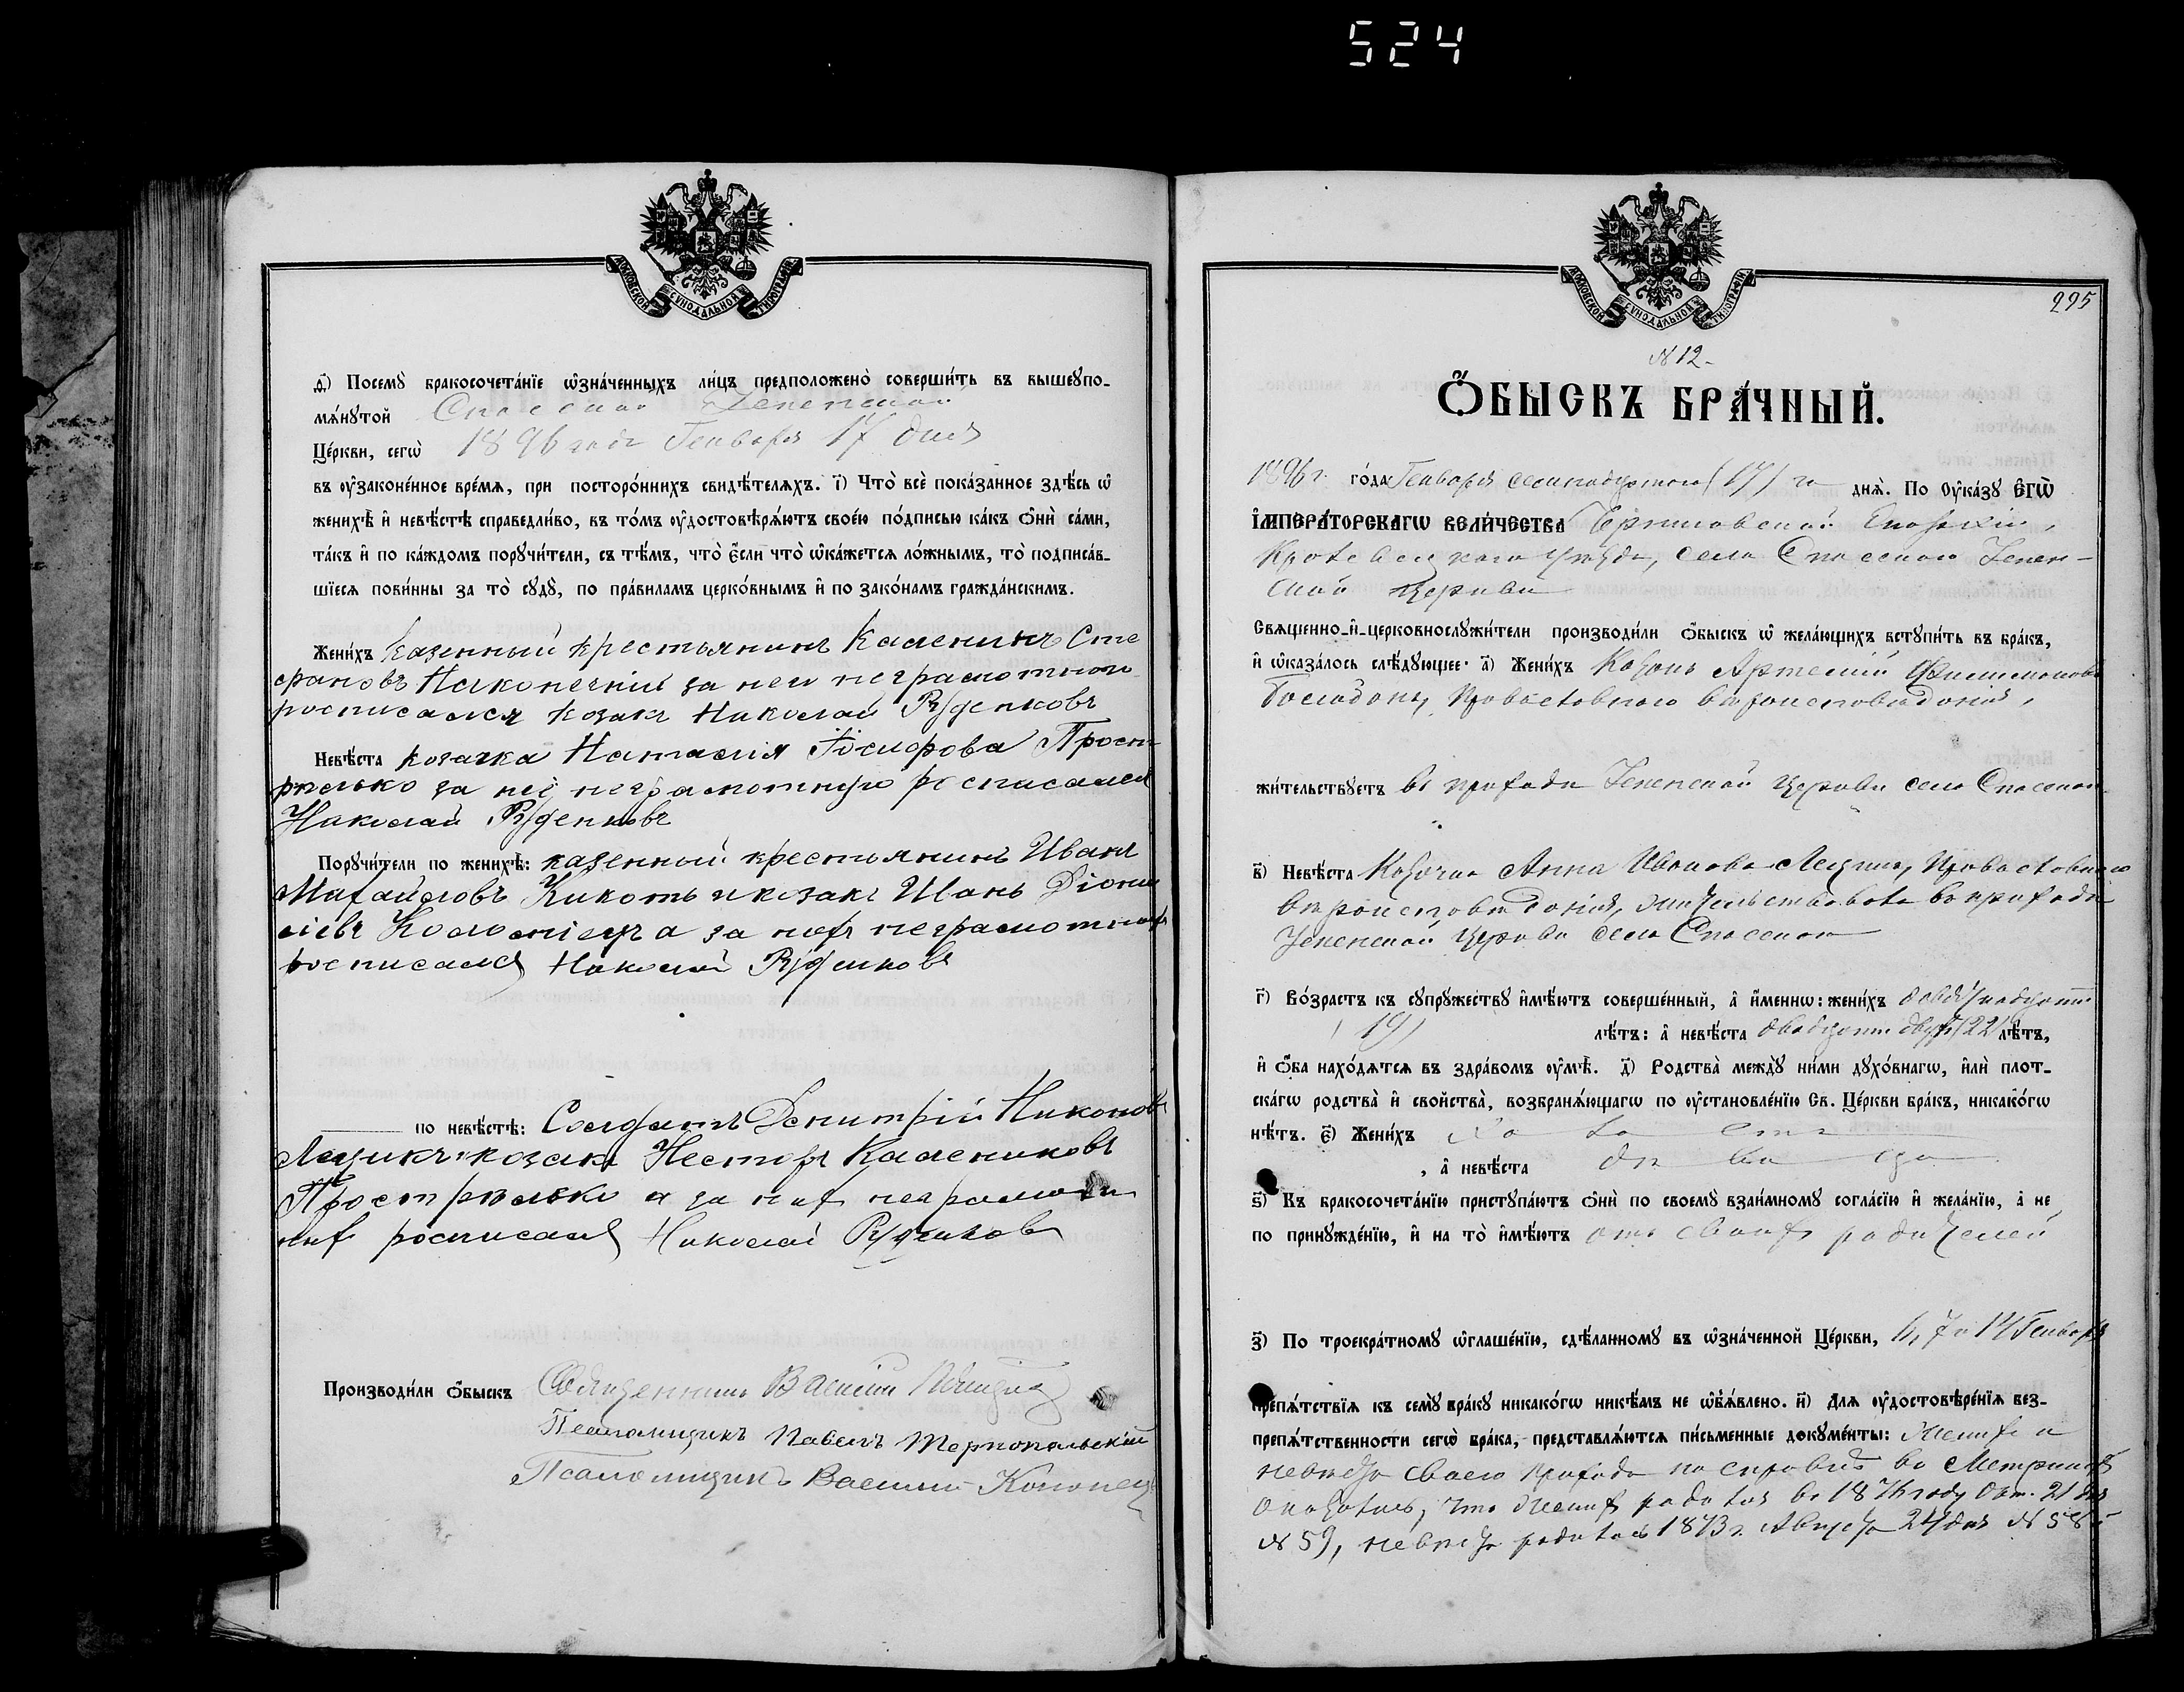 524
МОСКОВСКОЙ СѴНОДАЛЬНОЙ ТИПОГРАФІИ
д҃і) Посемꙋ̀ бракосочета́нїе ѡ҆зна́ченныхъ ли́цъ предположено̀ соверши́ть въ вышеꙋпо-
мѧ́нꙋтой Спасской
Це́ркви, сегѡ̀ 1896 года Генваря 17 дня
въ ѹ҆законе́нное вре́мѧ, при посторо́ннихъ свидѣ́телѧхъ. і҃) Что̀ всѐ пока́занное здѣ́сь ѡ҆
женихѣ̀ и҆ невѣ́стѣ справедли́во, въ то́мъ ѹ҆достовѣрѧ́ютъ свое́ю по́дписью ка́къ ѻ҆нѝ са́ми,
та́къ и҆ по ка́ждомъ порꙋчи́тели, съ тѣ́мъ, что̀ є҆́сли что̀ ѡ҆ка́жетсѧ ло́жнымъ, то̀ подписа́в-
шїесѧ пови́нны за то̀ сꙋдꙋ̀, по пра́виламъ церко́внымъ и҆ по зако́намъ гражда́нскимъ.
Жени́хъ Казенный крестьянинъ Каленикъ Сте
фановъ Наконечный за него неграмотного
росписался козакъ Николай Руденковъ
Невѣ́ста козачка Наталия Іосифова Прост
рѣлько за неї неграмотную росписался
Николай Руденковъ
Порꙋчи́тели по женихѣ̀: казенный крестьянинъ Иванъ
Михайловъ Кикоть и козакъ Иванъ Діони
сіевъ а за нихъ неграмотныхъ
росписался Николай Руденковъ
по невѣ́стѣ: Солдатъ Димитрій Никоновъ
Лещикъ козакъ Несторъ Калениковъ
Прострѣлько а за них неграмотн
ных росписался Николай Руденковъ
Производи́ли ѻ҆́быскъ Священникъ Василий
Псаломщикъ Павелъ Тернопольскій
Псаломщикъ Василий Кононец
МОСКОВСКОЙ СѴНОДАЛЬНОЙ ТИПОГРАФІИ
295
N 12
Ѻ҆́БЫСКЪ БРА́ЧНЫЙ.
1896 г. го́да Генваря семнадцатого (17) го днѧ̀. По ѹ҆ка́зꙋ Є҆ГѠ̀
І҆МПЕРА́ТОРСКАГѠ ВЕЛИ́ЧЕСТВА Черниговской Епархіи,
Кролевецкаго уѣзда, села Спасскаго Успен-
ской Церкви
Свѧще́нно-и҆-церковнослꙋжи́тели производи́ли ѻ҆́быскъ ѡ҆ жела́ющихъ встꙋпи́ть въ бра́къ,
и҆ ѡ҆каза́лось слѣ́дꙋющее: а҃) Жени́хъ Козакъ Артемій Филимоновъ
Православнаго вѣроисповѣданія,
жи́тельствꙋетъ въ приходѣ Успенской Церкви села Спасскаго
в҃) Невѣ́ста Козачка Анна Иванова Лещикъ, Православнаго
вѣроисповѣданія, жительствовала въ приходѣ
Успенской Церкви села Спасскаго
г҃) Во́зрастъ къ сꙋпрꙋ́жествꙋ и҆мѣ́ютъ соверше́нный, а҆ и҆́меннѡ: жени́хъ девятнадцати
(19) лѣ́тъ: а҆ невѣ́ста двадцати двухъ (22) лѣ́тъ,
и҆ ѻ҆́ба нахо́дѧтсѧ въ здра́вомъ ѹ҆мѣ̀. д҃) Родства̀ междꙋ̀ ни́ми дꙋхо́внагѡ, и҆лѝ плот-
ска́гѡ родства̀ и҆ свойства̀, возбранѧ́ющагѡ по ѹ҆становле́нїю Св. Це́ркви бра́къ, никако́гѡ
нѣ́тъ. є҃) Жени́хъ холостъ
, а҆ невѣ́ста дѣвица
ѕ҃) Къ бракосочета́нїю пристꙋпа́ютъ ѻ҆нѝ по своемꙋ̀ взаи́мномꙋ согла́сїю и҆ жела́нїю, а҆ не
по принꙋжде́нїю, и҆ на то̀ и҆мѣ́ютъ отъ своихъ родителей
з҃) По троекра́тномꙋ ѡ҆глаше́нїю, сдѣ́ланномꙋ въ ѡ҆зна́ченной Це́ркви, 6, 7 и 14 Генваря
препѧ́тствїѧ къ семꙋ̀ бра́кꙋ никако́гѡ никѣ́мъ не ѡ҆б̾ѧ́влено. и҃) Длѧ ѹ҆достовѣре́нїѧ без-
препѧ́тственности сегѡ̀ бра́ка, представлѧ́ютсѧ пи́сьменные докꙋме́нты: Женихъ и
невѣста своего прихода по справкѣ въ Метрикахъ
оказалось, что женихъ родился въ 1876 году Окт. 21 дня
N 59, невѣста родилась 1873 г. Августа 24 дня N 58